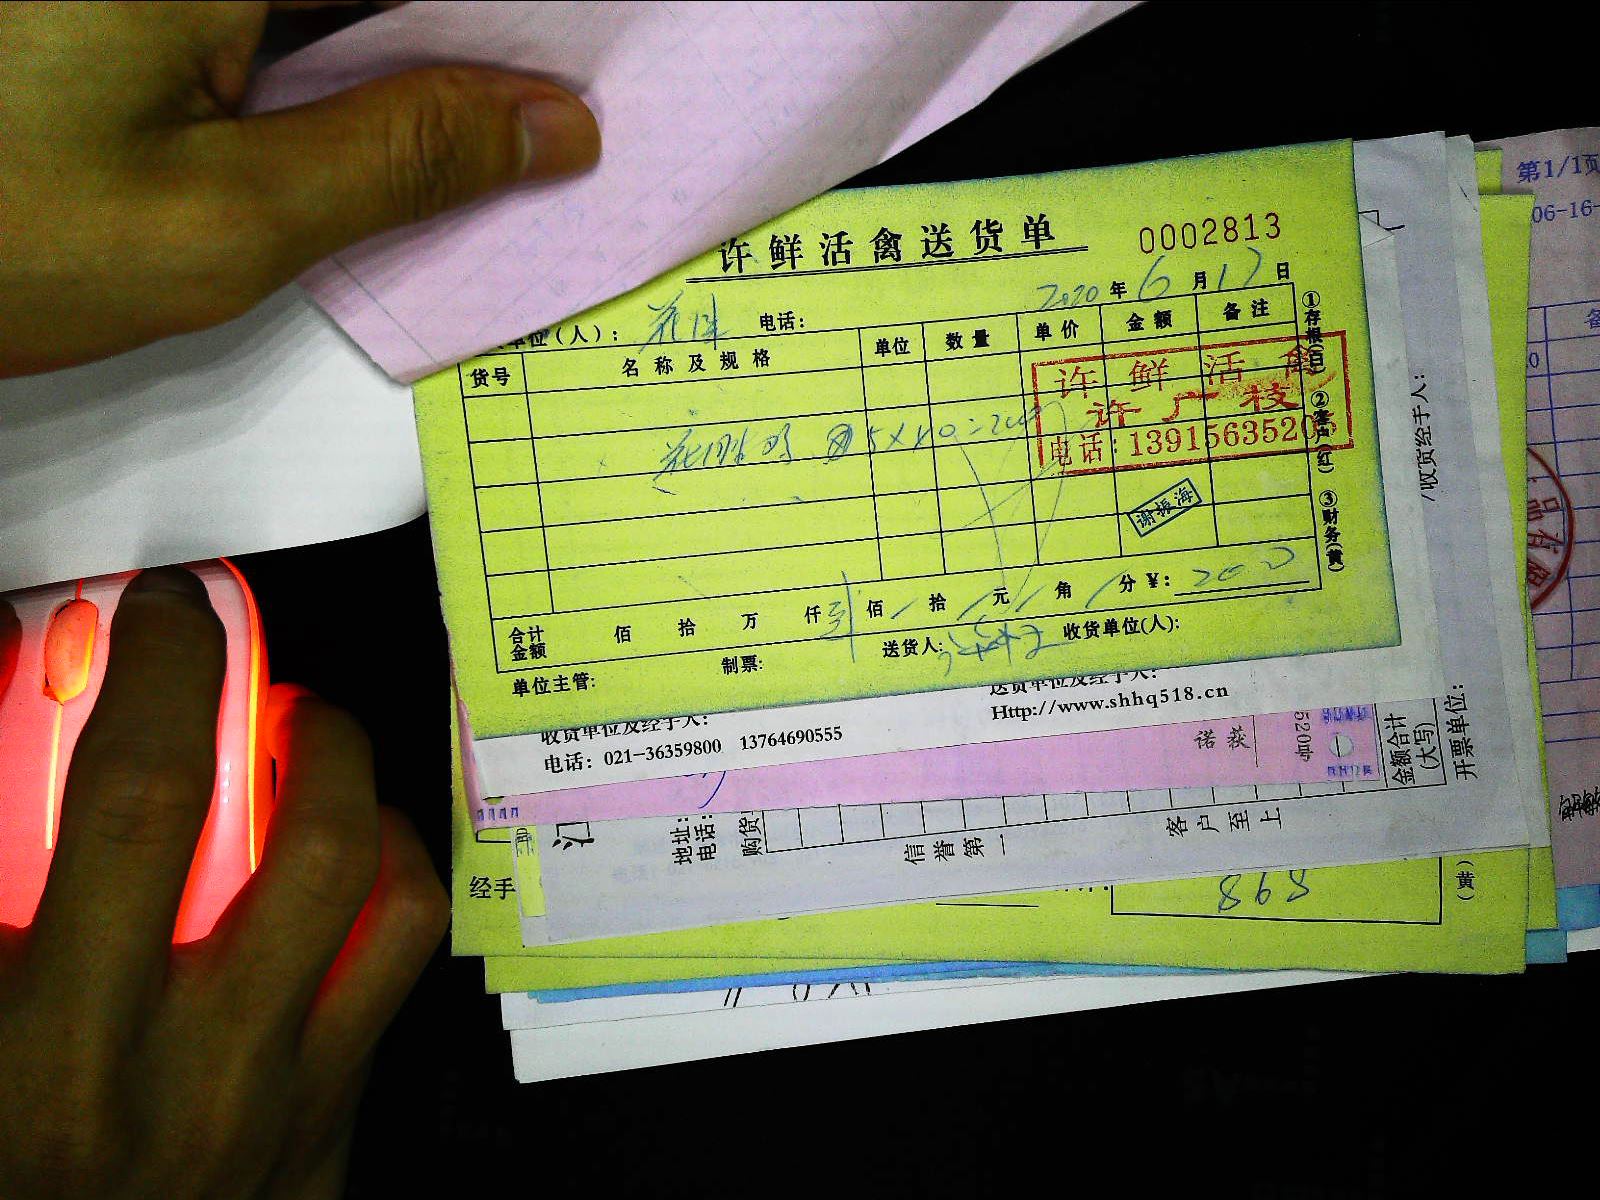 许鲜活禽送货单
0002813
2020年6月17日
单位(人):
电话:
货号 名称及规格 单位 数量 单价 金额 备注
5×40=200
许鲜活禽
许广枝
电话:13915635205
谢振海
①存根(白) ②客户(红) ③财务(黄)
合计金额 佰 拾 万 仟 佰 拾 元 角 分 ¥: 200
单位主管: 制票: 送货人: 收货单位(人):
收货单位及经手人:
送货单位及经手人:
电话: 021-36359800 13764690555
Http://www.shhq518.cn
诺获
520
金额合计
(大写)
开票单位:
/收货经手人:
地址:
电话:
购货
信誉第一
客户至上
经手
868
(黄)
第1/1页
06-16-
品有限